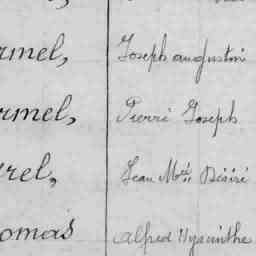 rmel, Joseph augustin
rmel, Pierre Joseph
rel, Jean Mie Désiré
omas Alfred Hyacinthe